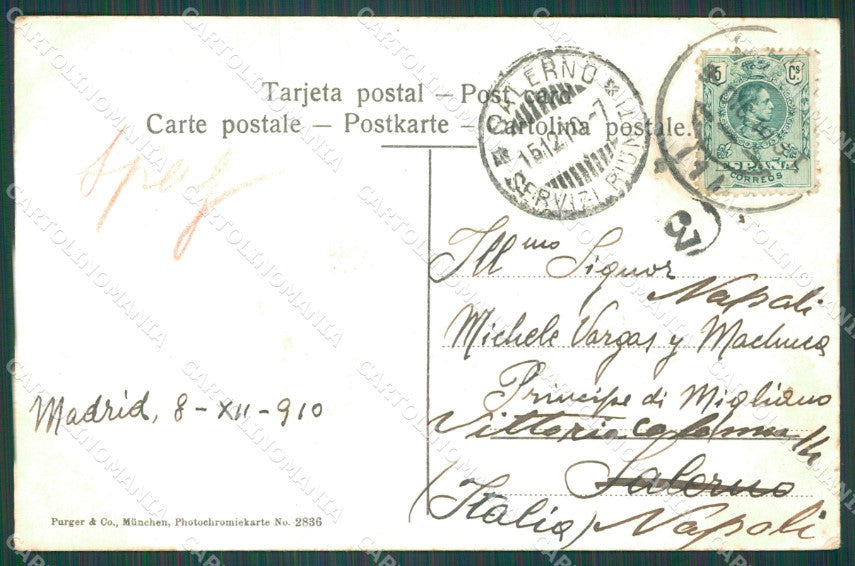 Tarjeta postal — Post card
Carte postale — Postkarte — Cartolina postale.
SALERNO
15.12.10-7
SERVIZI RIUNITI
15 Cs
ESPAÑA
CORREOS
3
Ill.mo Signor
Napoli
Michele Vargas y Machuca
Principe di Migliano
Vittoria Colonna 14
Salerno
(Italia) Napoli
Madrid, 8-XII-910
Purger & Co., München, Photochromiekarte No. 2836
CARTOLINOMANIA